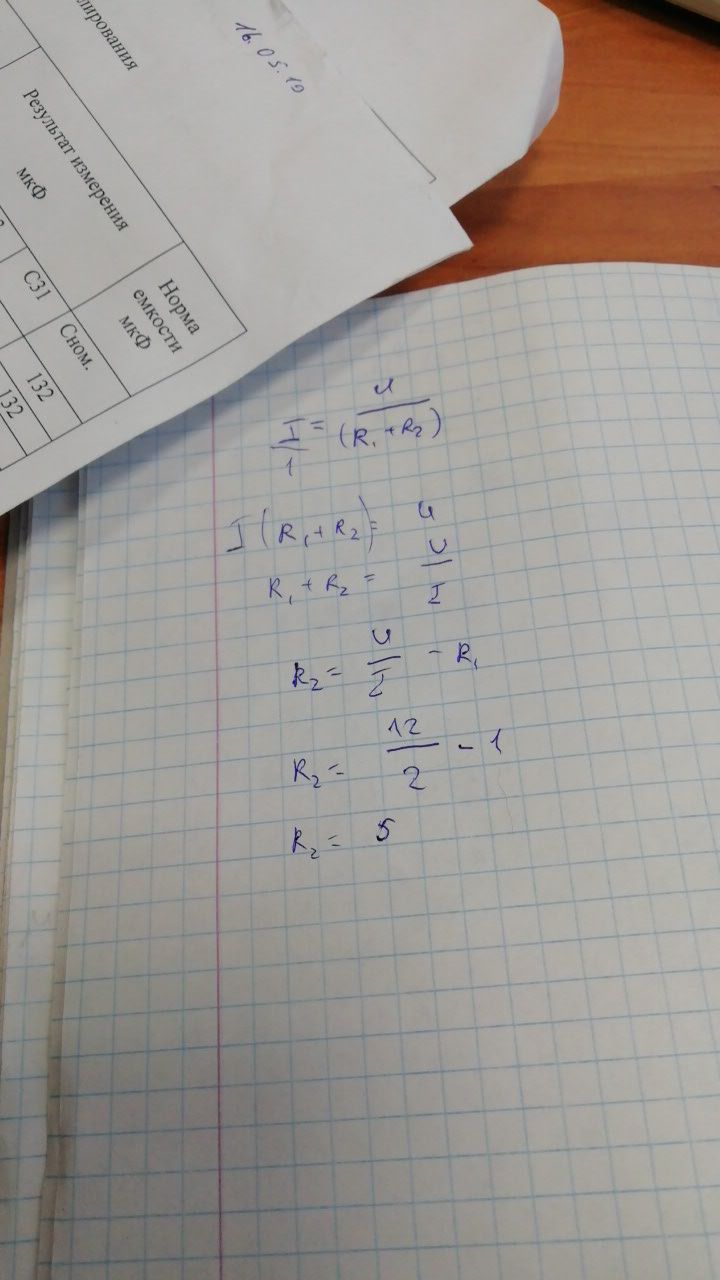 лирования
16.05.19
Результат измерения
мкФ
Норма
емкости
мкФ
С31
Сном.
132
132
I/1 = U/(R₁ + R₂)
I (R₁ + R₂) = U
R₁ + R₂ = U/I
R₂ = U/I - R₁
R₂ = 12/2 - 1
R₂ = 5